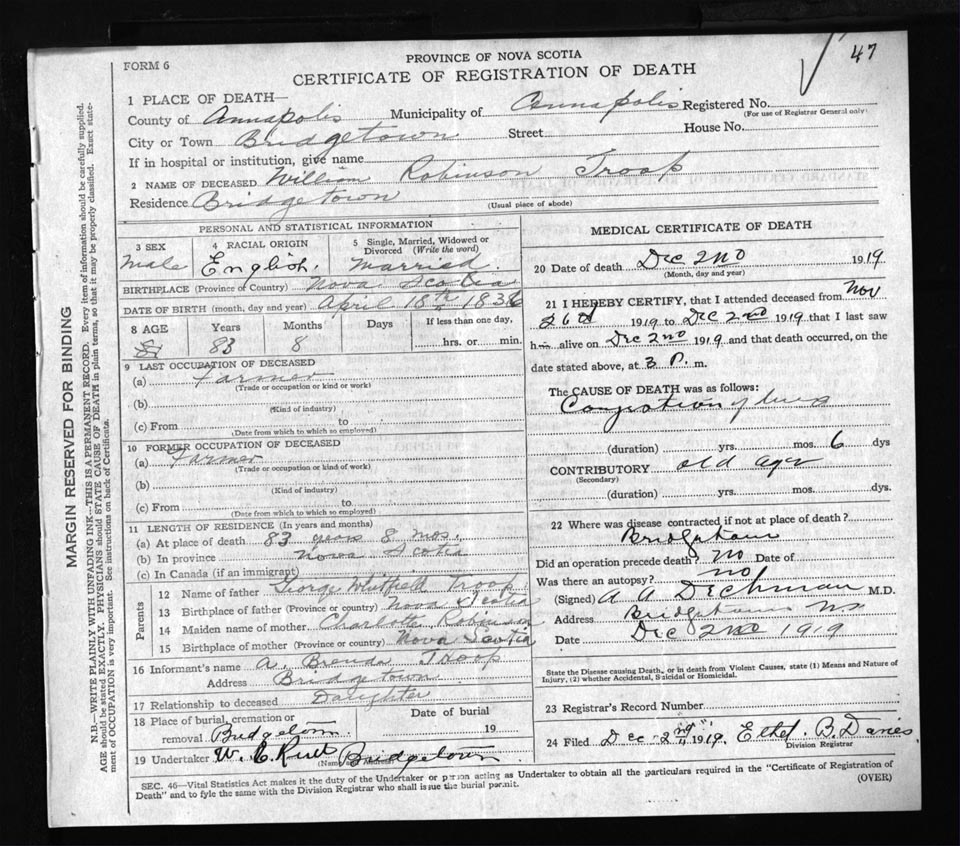 47
PROVINCE OF NOVA SCOTIA
FORM 6
CERTIFICATE OF REGISTRATION OF DEATH
1 PLACE OF DEATH—
County of Annapolis Municipality of Annapolis Registered No.
(For use of Registrar General only)
City or Town Bridgetown Street House No.
If in hospital or institution, give name
2 NAME OF DECEASED William Robinson Troop
Residence Bridgetown (Usual place of abode)
PERSONAL AND STATISTICAL INFORMATION
3 SEX 4 RACIAL ORIGIN 5 Single, Married, Widowed or Divorced (Write the word)
Male English. Married
BIRTHPLACE (Province or Country) Nova Scotia
DATE OF BIRTH (month, day and year) April 18th 1836
8 AGE Years Months Days If less than one day,
83 8 hrs. or min.
9 LAST OCCUPATION OF DECEASED
(a) Farmer
(Trade or occupation or kind or work)
(b)
(Kind of industry)
(c) From to
(Date from which to which so employed)
10 FORMER OCCUPATION OF DECEASED
(a) Farmer
(Trade or occupation or kind of work)
(b)
(Kind of industry)
(c) From to
(Date from which to which so employed)
11 LENGTH OF RESIDENCE (In years and months)
(a) At place of death 83 years 8 mos.
(b) In province Nova Scotia
(c) In Canada (if an immigrant)
Parents
12 Name of father George Whitfield Troop
13 Birthplace of father (Province or country) Nova Scotia
14 Maiden name of mother Charlotte Robinson
15 Birthplace of mother (Province or country) Nova Scotia
16 Informant's name A. Brenda Troop
Address Bridgetown
17 Relationship to deceased Daughter
18 Place of burial, cremation or removal Bridgetown Date of burial 19
19 Undertaker W. C. Bridgetown
MEDICAL CERTIFICATE OF DEATH
20 Date of death Dec 2nd 1919
(Month, day and year)
21 I HEREBY CERTIFY, that I attended deceased from Nov
26th 1919 to Dec 2nd 1919 that I last saw
him alive on Dec 2nd 1919 and that death occurred, on the
date stated above, at 3 P. m.
The CAUSE OF DEATH was as follows:
Congestion of lungs
(duration) yrs. mos. 6 dys
CONTRIBUTORY old age
(Secondary)
(duration) yrs. mos. dys.
22 Where was disease contracted if not at place of death?
Bridgetown
Did an operation precede death? no Date of
Was there an autopsy? no
(Signed) A A Dechman M.D.
Address Bridgetown NS
Date Dec 2nd 1919
State the Disease causing Death, or in death from Violent Causes, state (1) Means and Nature of
Injury, (2) whether Accidental, Suicidal or Homicidal.
23 Registrar's Record Number
24 Filed Dec 2nd 1919. Ethel B. Davies.
Division Registrar
SEC. 46—Vital Statistics Act makes it the duty of the Undertaker or person acting as Undertaker to obtain all the particulars required in the "Certificate of Registration of
Death" and to fyle the same with the Division Registrar who shall issue the burial permit.
(OVER)
MARGIN RESERVED FOR BINDING
N.B.—WRITE PLAINLY WITH UNFADING INK—THIS IS A PERMANENT RECORD. Every item of information should be carefully supplied.
AGE should be stated EXACTLY. PHYSICIANS should STATE CAUSE OF DEATH in plain terms, so that it may be properly classified. Exact state-
ment of OCCUPATION is very important. See instructions on back of Certificate.